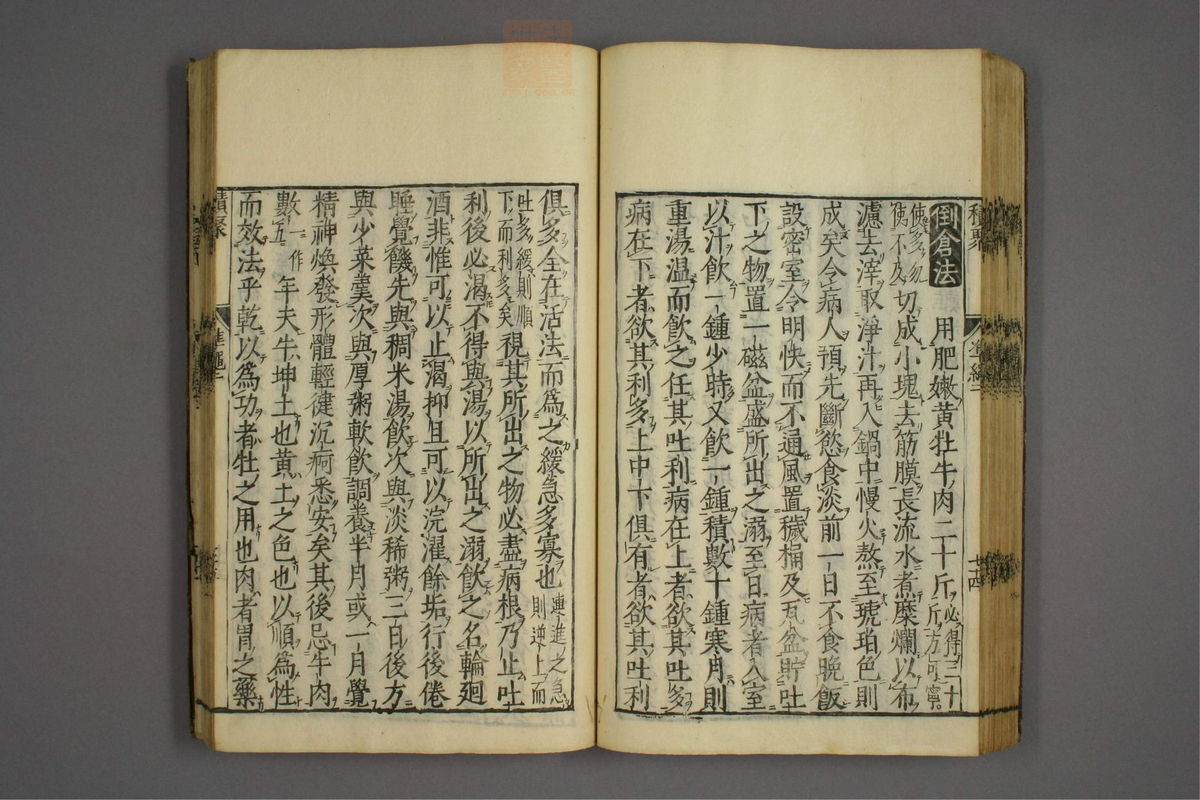 倒倉法 用肥嫩黃牡牛肉二十斤必得三十斤方可寧
使多勿使不及切成小塊去筋膜長流水煮糜爛以布
濾去滓取淨汁再入鍋中慢火熬至琥珀色則
成矣今病人預先斷慾食淡前一日不食晩飯
設密室令明快而不通風置穢桶及瓦盆貯吐
下之物置一磁盆盛所出之溺至日病者入室
以汁飲一鍾少時又飲一鍾積數十鍾寒月則
重湯温而飲之任其吐利病在上者欲其吐多
病在下者欲其利多上中下俱有者欲其吐利
積聚 準繩二 廿四
俱多全在活法而爲之緩急多寡也連進之急則逆上而
吐多緩則順下而利多矣視其所出之物必盡病根乃止吐
利後必渴不得與湯以所出之溺飲之名輪廻
酒非惟可以止渴抑且可以浣濯餘垢行後倦
睡覺饑先與稠米湯飲次與淡稀粥三日後方
與少菜羹次與厚粥軟飲調養半月或一月覺
精神煥發形體輕健沉痾悉安矣其後忌牛肉
數一作五年夫牛坤土也黃土之色也以順爲性
而效法乎乾以爲功者牡之用也肉者胃之藥
積聚 準繩二